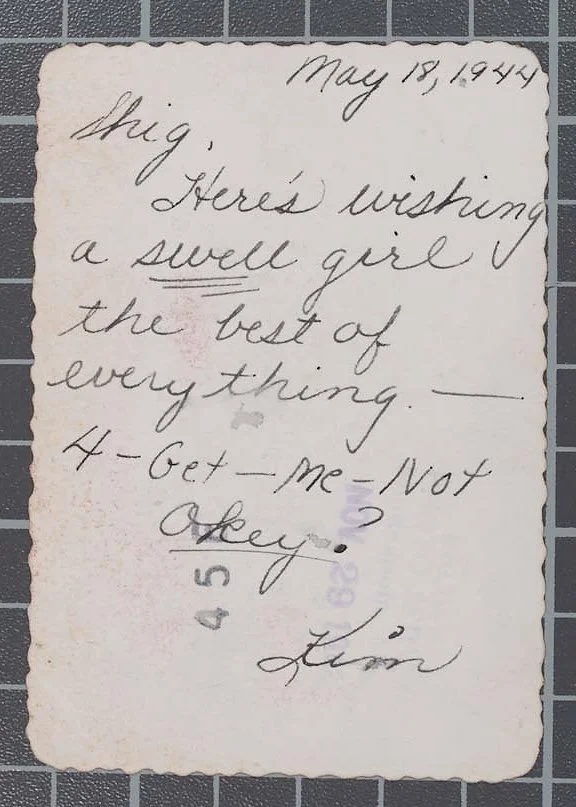 May 18, 1944
Shig,
Here's wishing
a swell girl
the best of
everything. —
4-Get-Me-Not
Okey?
Kim
45
NOV 28